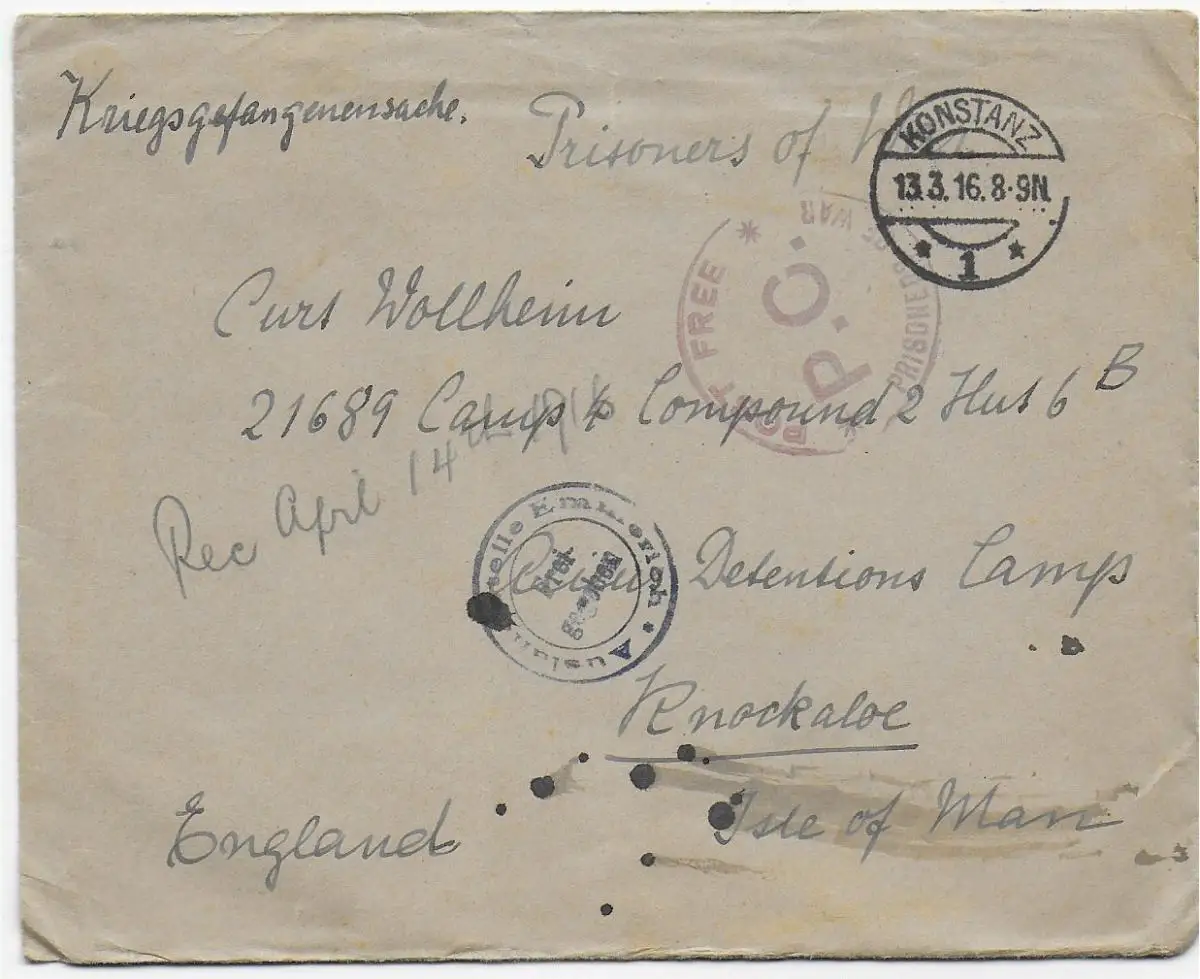 Kriegsgefangenensache.
Prisoners of
KONSTANZ
13.3.16.8-9N.
* 1 *
FREE * P.C. PRISONERS OF WAR
Curt Wollheim
21689 Camp 4 Compound 2 Hut 6 B
Rec April 14th 1916
Auslandsstelle Emmerich •
Frei
gegeben
Detentions Camp
Knockaloe
Isle of Man
England